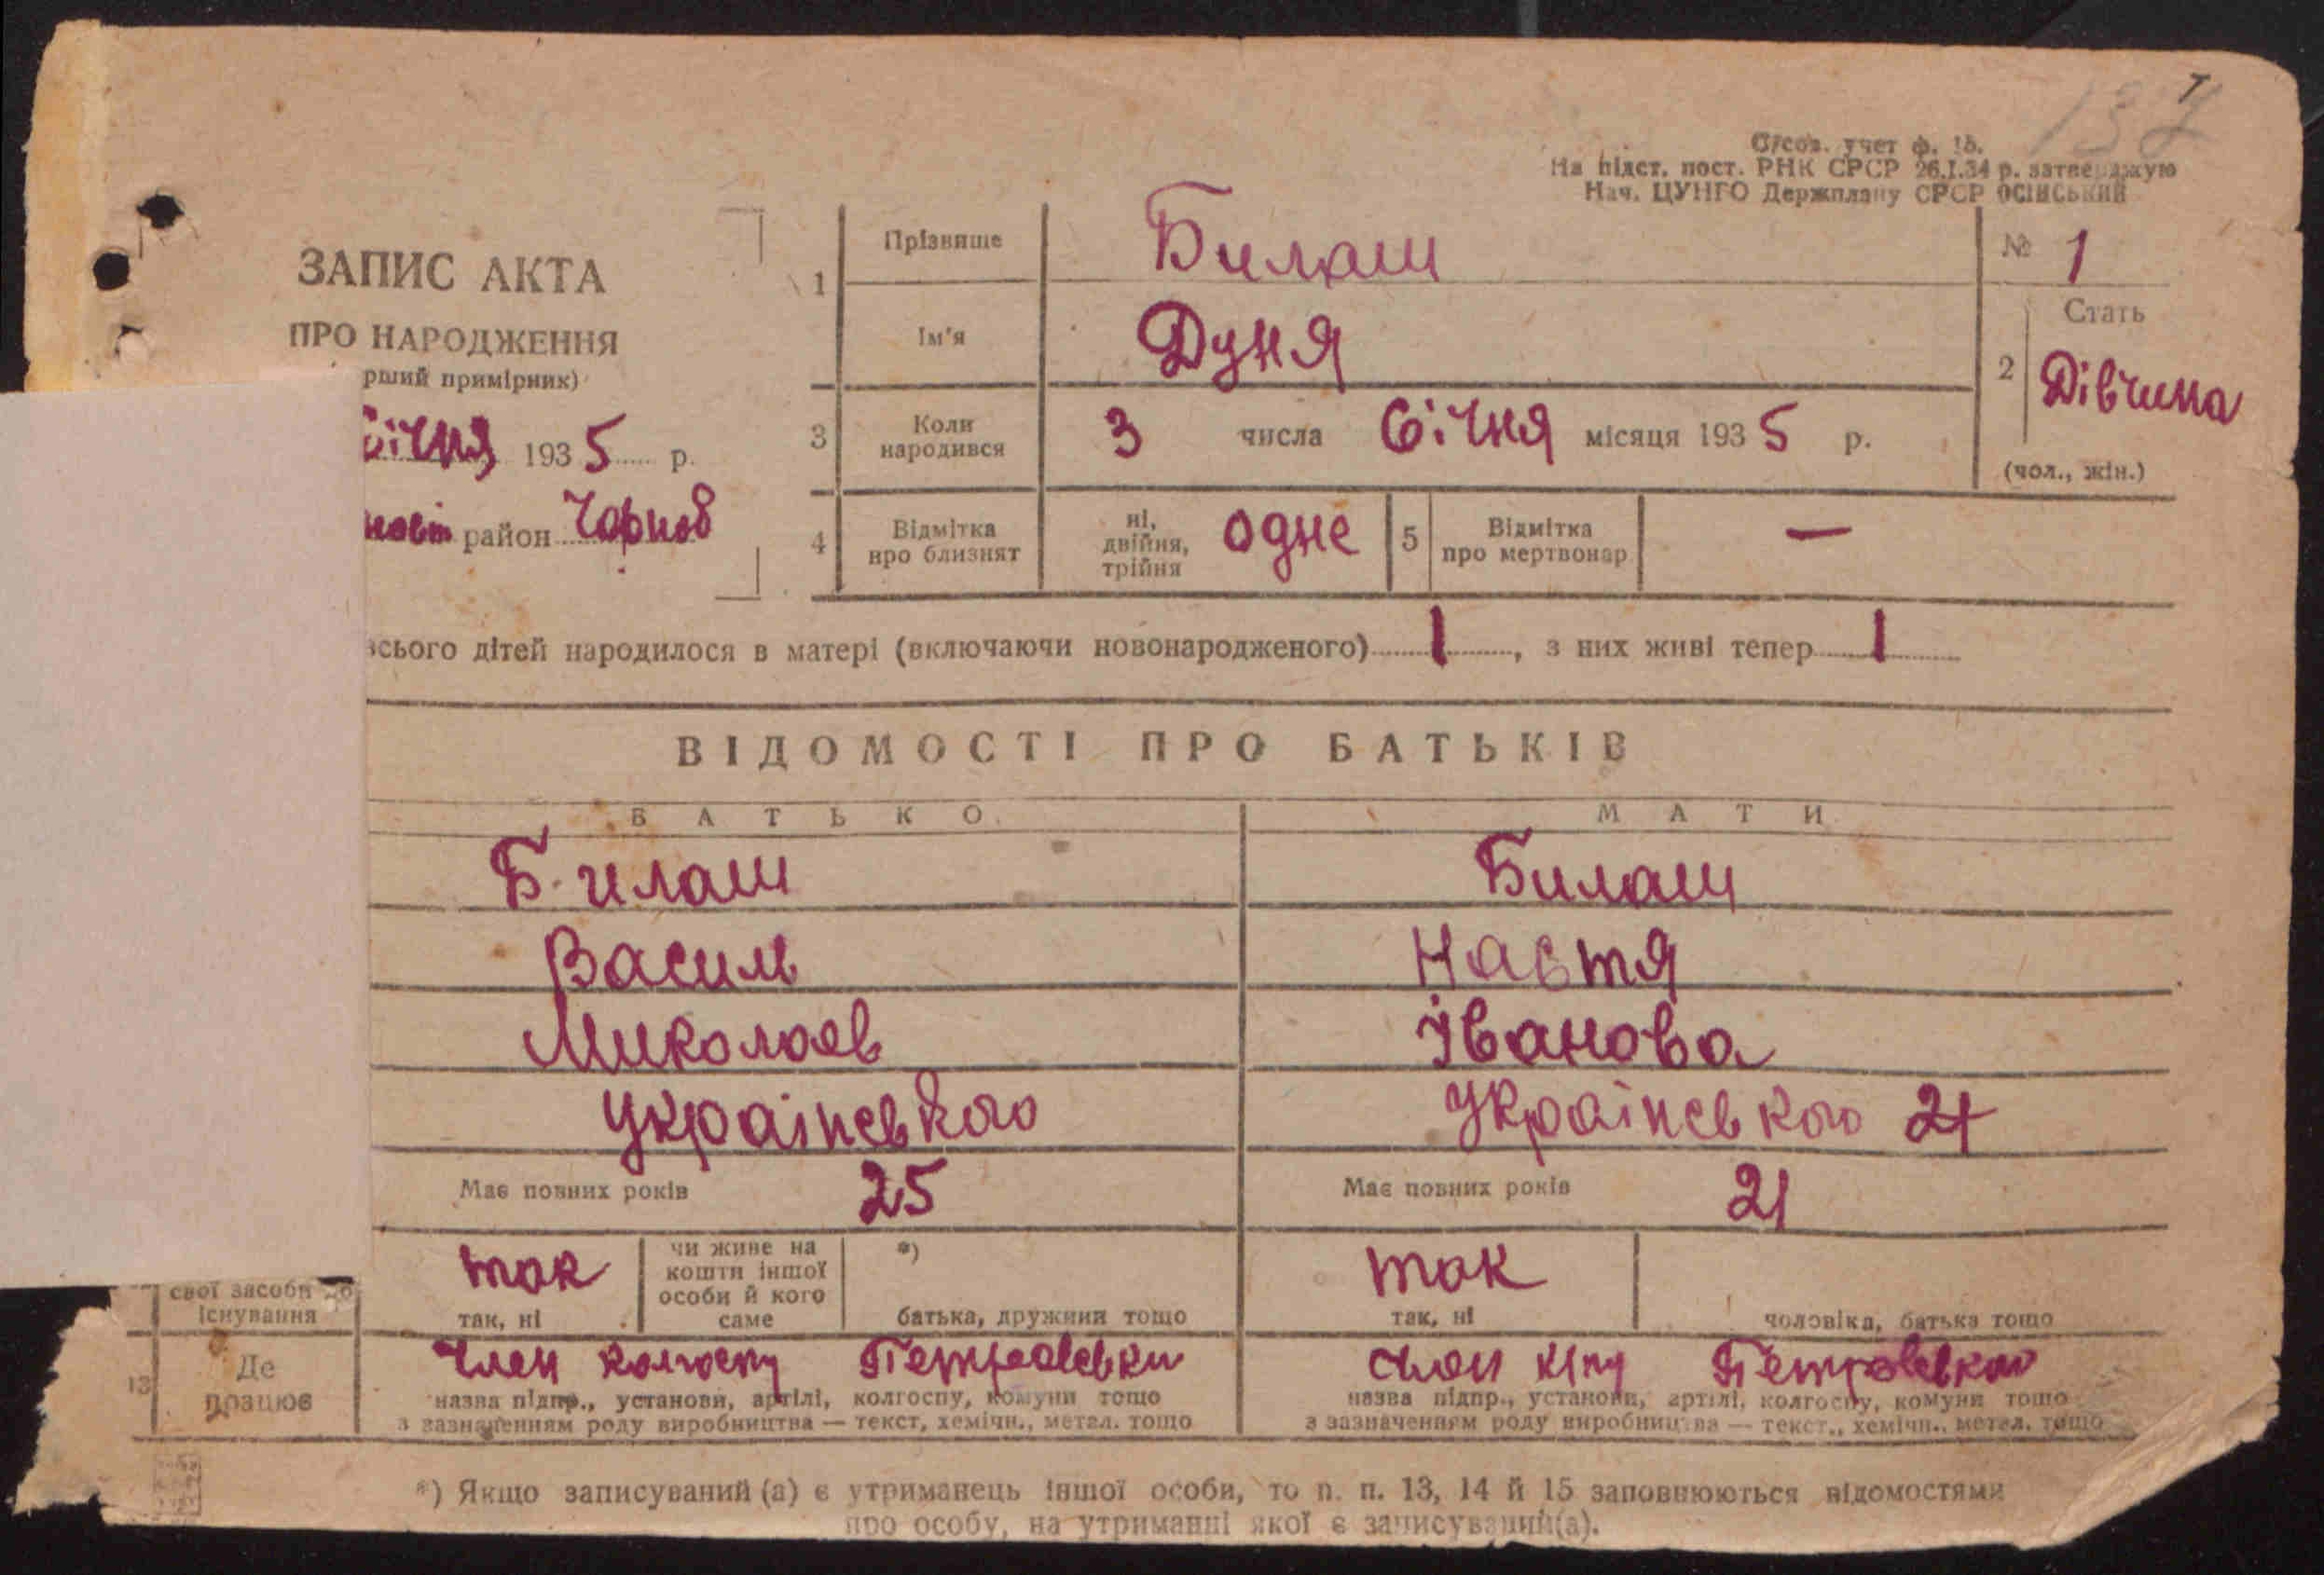 137
О/соз. учет ф. 1б.
На підст. пост. РНК СРСР 26.I.34 р. затверджую
Нач. ЦУНГО Держплану СРСР ОСІНСЬКИЙ
ЗАПИС АКТА
ПРО НАРОДЖЕННЯ
рший примірник)
січня 1935 р.
район Чорноб
1 Прізвище Билаш
№ 1
Ім'я Дуня
2 Стать Дівчина
(чол., жін.)
3 Коли народився 3 числа Січня місяця 1935 р.
4 Відмітка про близнят ні, двійня, трійня одне 5 Відмітка про мертвонар. —
всього дітей народилося в матері (включаючи новонародженого) 1, з них живі тепер 1
ВІДОМОСТІ ПРО БАТЬКІВ
БАТЬКО МАТИ
Билаш Билаш
Василь Настя
Миколаев Іванова
Українського Українського 21
Має повних років 25 Має повних років 21
свої засоби існування так чи живе на кошти іншої особи й кого саме *) так
так, ні батька, дружини тощо так, ні чоловіка, батька тощо
13 Де працює Член колгоспу Петровська член Петровська
назва підпр., установи, артілі, колгоспу, комуни тощо назва підпр., установи, артілі, колгоспу, комуни тощо
з зазначенням роду виробництва — текст, хемічн., метал. тощо з зазначенням роду виробництва — текст., хемічн., метал. тощо
*) Якщо записуваний (а) є утриманець іншої особи, то п. п. 13, 14 й 15 заповнюються відомостями
про особу, на утриманні якої є записуваний(а).